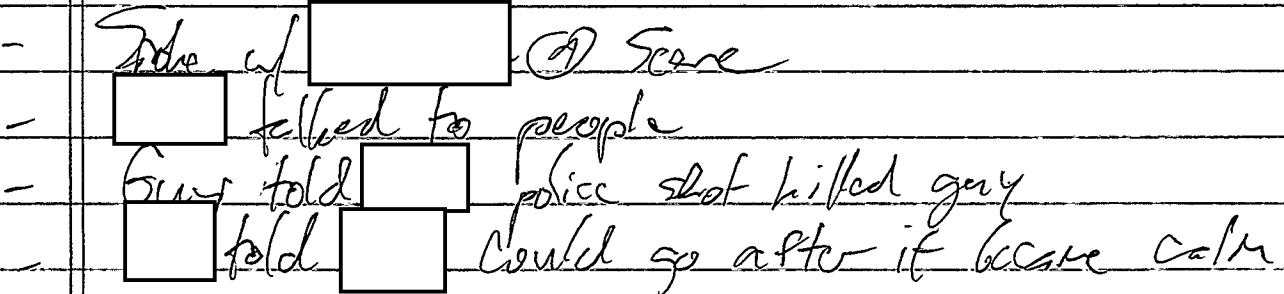 - Spoke w/ @ Scene
- talked to people
- Guy told police shot killed guy
- told could go after it became calm